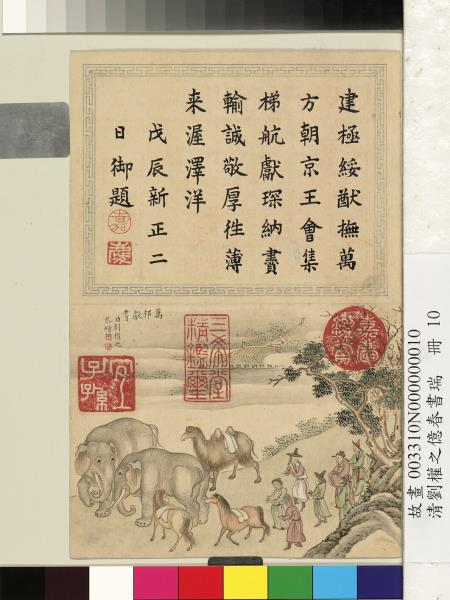 建極綏猷撫萬
方朝京王會集
梯航獻琛納賮
輸誠敬厚徃薄
来渥澤洋
戊辰新正二
日御題
萬邦獻賮
臣劉權之
恭繪
三希堂
精鑑璽
宜
子孫
故畫 003310N000000010
清劉權之億春書瑞 冊 10